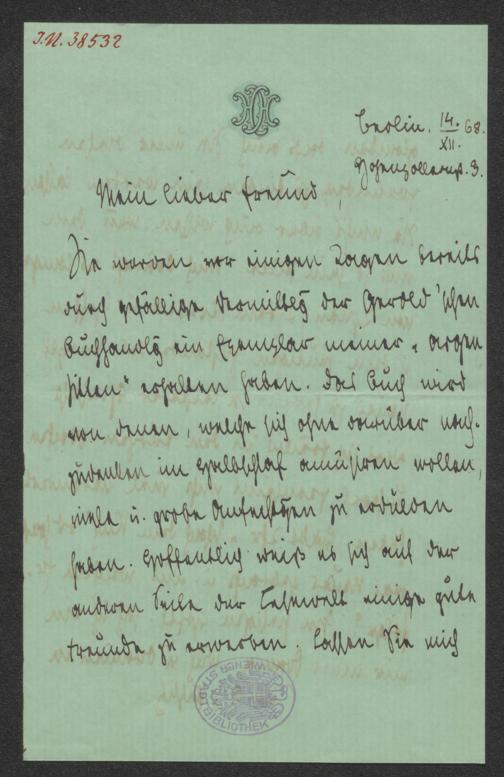 J.N. 38532
Berlin. 14./XII. 68.
Hohenzollernstr. 3.
Mein lieber Freund,
Sie werden vor einigen Tagen bereits
durch gefällige Vermittlg der Gerold'schen
Buchhandlg ein Exemplar meiner „argen
Sitten“ erhalten haben. Das Buch wird
von denen, welche sich ohne darüber nach-
zudenken im Halbschlaf amüsiren wollen,
viele u. grobe Anfechtgen zu erdulden
haben. Hoffentlich weiß es sich auf der
anderen Seite der Lesewelt einige gute
Freunde zu erwerben. Lassen Sie mich
WIENER STADTBIBLIOTHEK